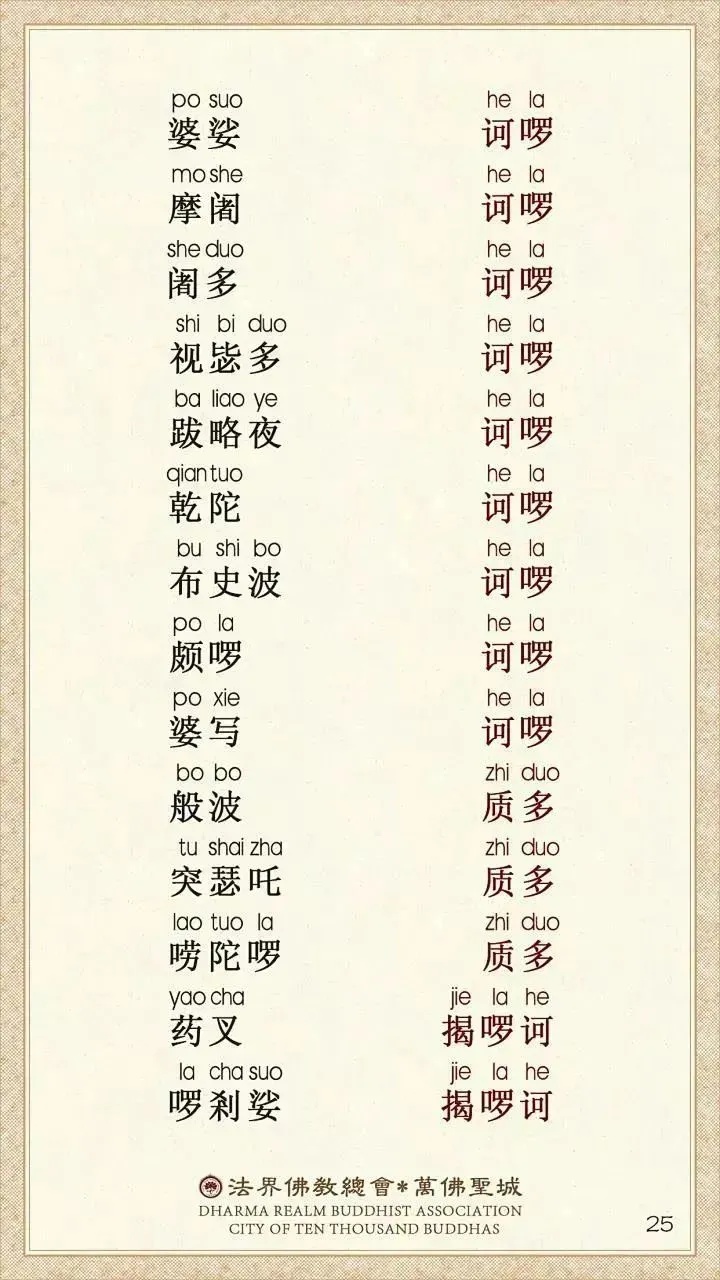 po suo he la
婆娑 诃啰
mo she he la
摩阇 诃啰
she duo he la
阇多 诃啰
shi bi duo he la
视毖多 诃啰
ba liao ye he la
跋略夜 诃啰
qian tuo he la
乾陀 诃啰
bu shi bo he la
布史波 诃啰
po la he la
颇啰 诃啰
po xie he la
婆写 诃啰
bo bo zhi duo
般波 质多
tu shai zha zhi duo
突瑟吒 质多
lao tuo la zhi duo
唠陀啰 质多
yao cha jie la he
药叉 揭啰诃
la cha suo jie la he
啰刹娑 揭啰诃
法界佛教總會*萬佛聖城
DHARMA REALM BUDDHIST ASSOCIATION
CITY OF TEN THOUSAND BUDDHAS
25